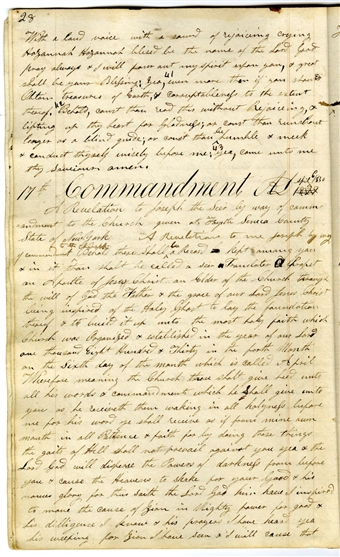 28
With a loud voice with a sound of rejoiceing crying
Hozannah Hozannah blesed be the name of the Lord God
Pray always & I will pour out my spirit upon you & great
shall be your Blessing Yea even more than if you should
Obtain treasures of Earth, & corruptableness to the extent
thereof Behold, canst thou read this without Rejoiceing, &
lifting up thy heart for gladness, or canst thou run about
longer as a blind guide, or canst thou be humble & meek
& conduct thyself wisely before me, yea come unto me
thy Saviour amen
17th Commandment AD 1830
A Revelation to Joseph the Seer by way of comm
andment to the Church given at Fayette Seneca County
State of New York A Revelation to me
Behold there shall a Record be kept among you
& in it thou shalt be called a seer & Translater & Prophet
an Apostle of Jesus Christ an Elder of the Church through
the will of God the Father & the grace of our Lord Jesus Christ
being inspired of the Holy Ghost to lay the foundation
thereof & to build it up unto the most holy faith which
Church was Organized & established in the year of our Lord
one thousand Eight Hundred & Thirty in the forth Month
on the Sixth day of the month which is called April
Wherefore meaning the Church thou shalt give heed unto
all his words & commandments which he shall give unto
you as he receiveth them walking in all holyness before
me for his word ye shall receive as if from mine own
mouth in all Patience & faith for by doing these things
the gaits of Hell shall not prevail against you yea & the
Lord God will disperse the Powers of darkness from before
you & cause the Heavens to shake for your good & his
names glory for thus saith the Lord God him have I inspired
to move the cause of Zion in Mighty power for good &
his dilligence I know & his prayers I have heard yea
his weeping for Zion I have seen & I will cause that